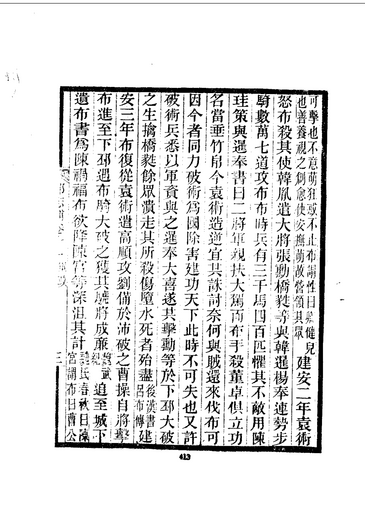 可擊也不意萌狂悖不止布謂性曰梟健兒
也善養視之創愈使安撫萌故營領其眾
建安二年袁術
怒布殺其使韓胤遣大將張勳橋蕤等與韓暹楊奉連勢步
騎數萬七道攻布布時兵有三千馬四百匹懼其不敵用陳
珪策與暹奉書曰二將軍親扶大駕而布手殺董卓俱立功
名當垂竹帛今袁術造逆宜共誅討奈何與賊還來伐布可
因今者同力破術為國除害建功天下此時不可失也又許
破術兵悉以軍資與之暹奉大喜遂共擊勳等於下邳大破
之生擒橋蕤餘眾潰走其所殺傷墮水死者殆盡
後漢書
呂布傳
建
安三年布復從袁術遣高順攻劉備於沛破之曹操自將擊
布進至下邳布騎大破之獲其驍將成廉
魏武
紀
追至城下
遺布書為陳禍福布欲降陳宮等深沮其計
獻帝春秋曰陳
宮謂布曰曹公
三
413